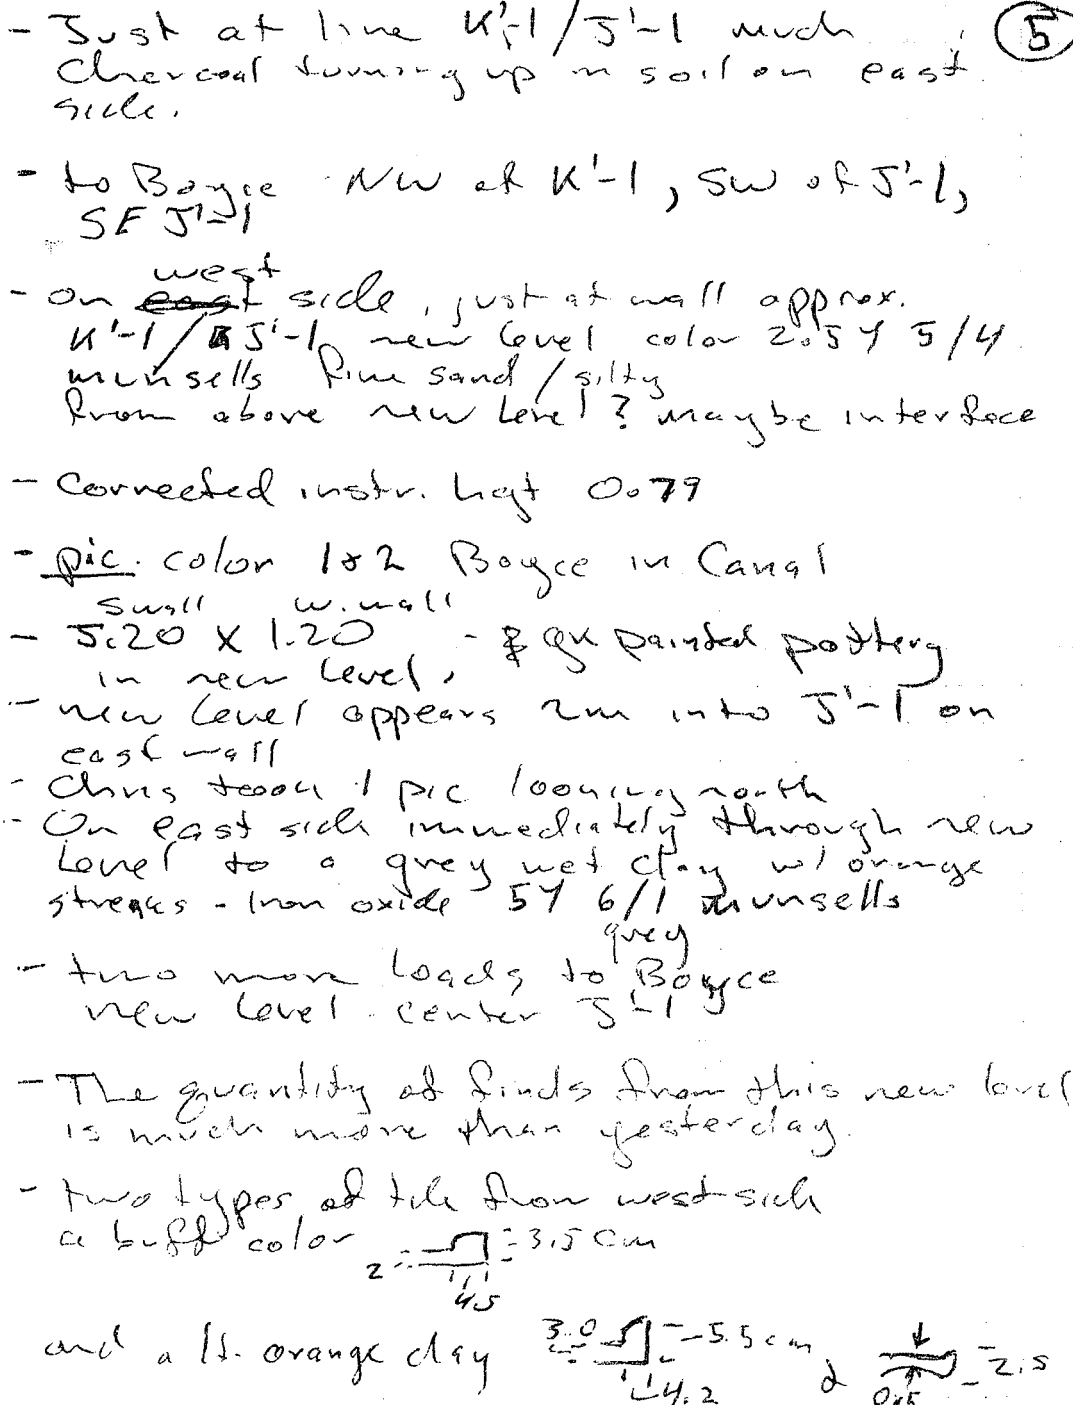 5
- Just at line K'-1/J'-1 much
charcoal turning up in soil on east
side.
- to Boyce NW of K'-1, SW of J'-1,
SE J'-1
west
- on east side, just at wall approx.
K'-1/J'-1, new level color 2.5Y 5/4
munsells fine sand/silty
from above new level? maybe interface
- Corrected instr. hgt 0.79
- pic. color 1+2 Boyce in Canal
S wall W. wall
- 5.20 x 1.20 - gk painted pottery
in new level.
- new level appears 2m into J'-1 on
east wall
- Chris took 1 pic looking north
- On east side immediately through new
level to a grey wet clay w/ orange
streaks - Iron oxide 5Y 6/1 munsells
grey
- two more loads to Boyce
new level center J'-1
- The quantity of finds from this new level
is much more than yesterday.
- two types of tile from west side
a buff color 2 3.5 cm
4.5
and a lt. orange clay 3.0 5.5 cm & 2.5
4.2 0.5